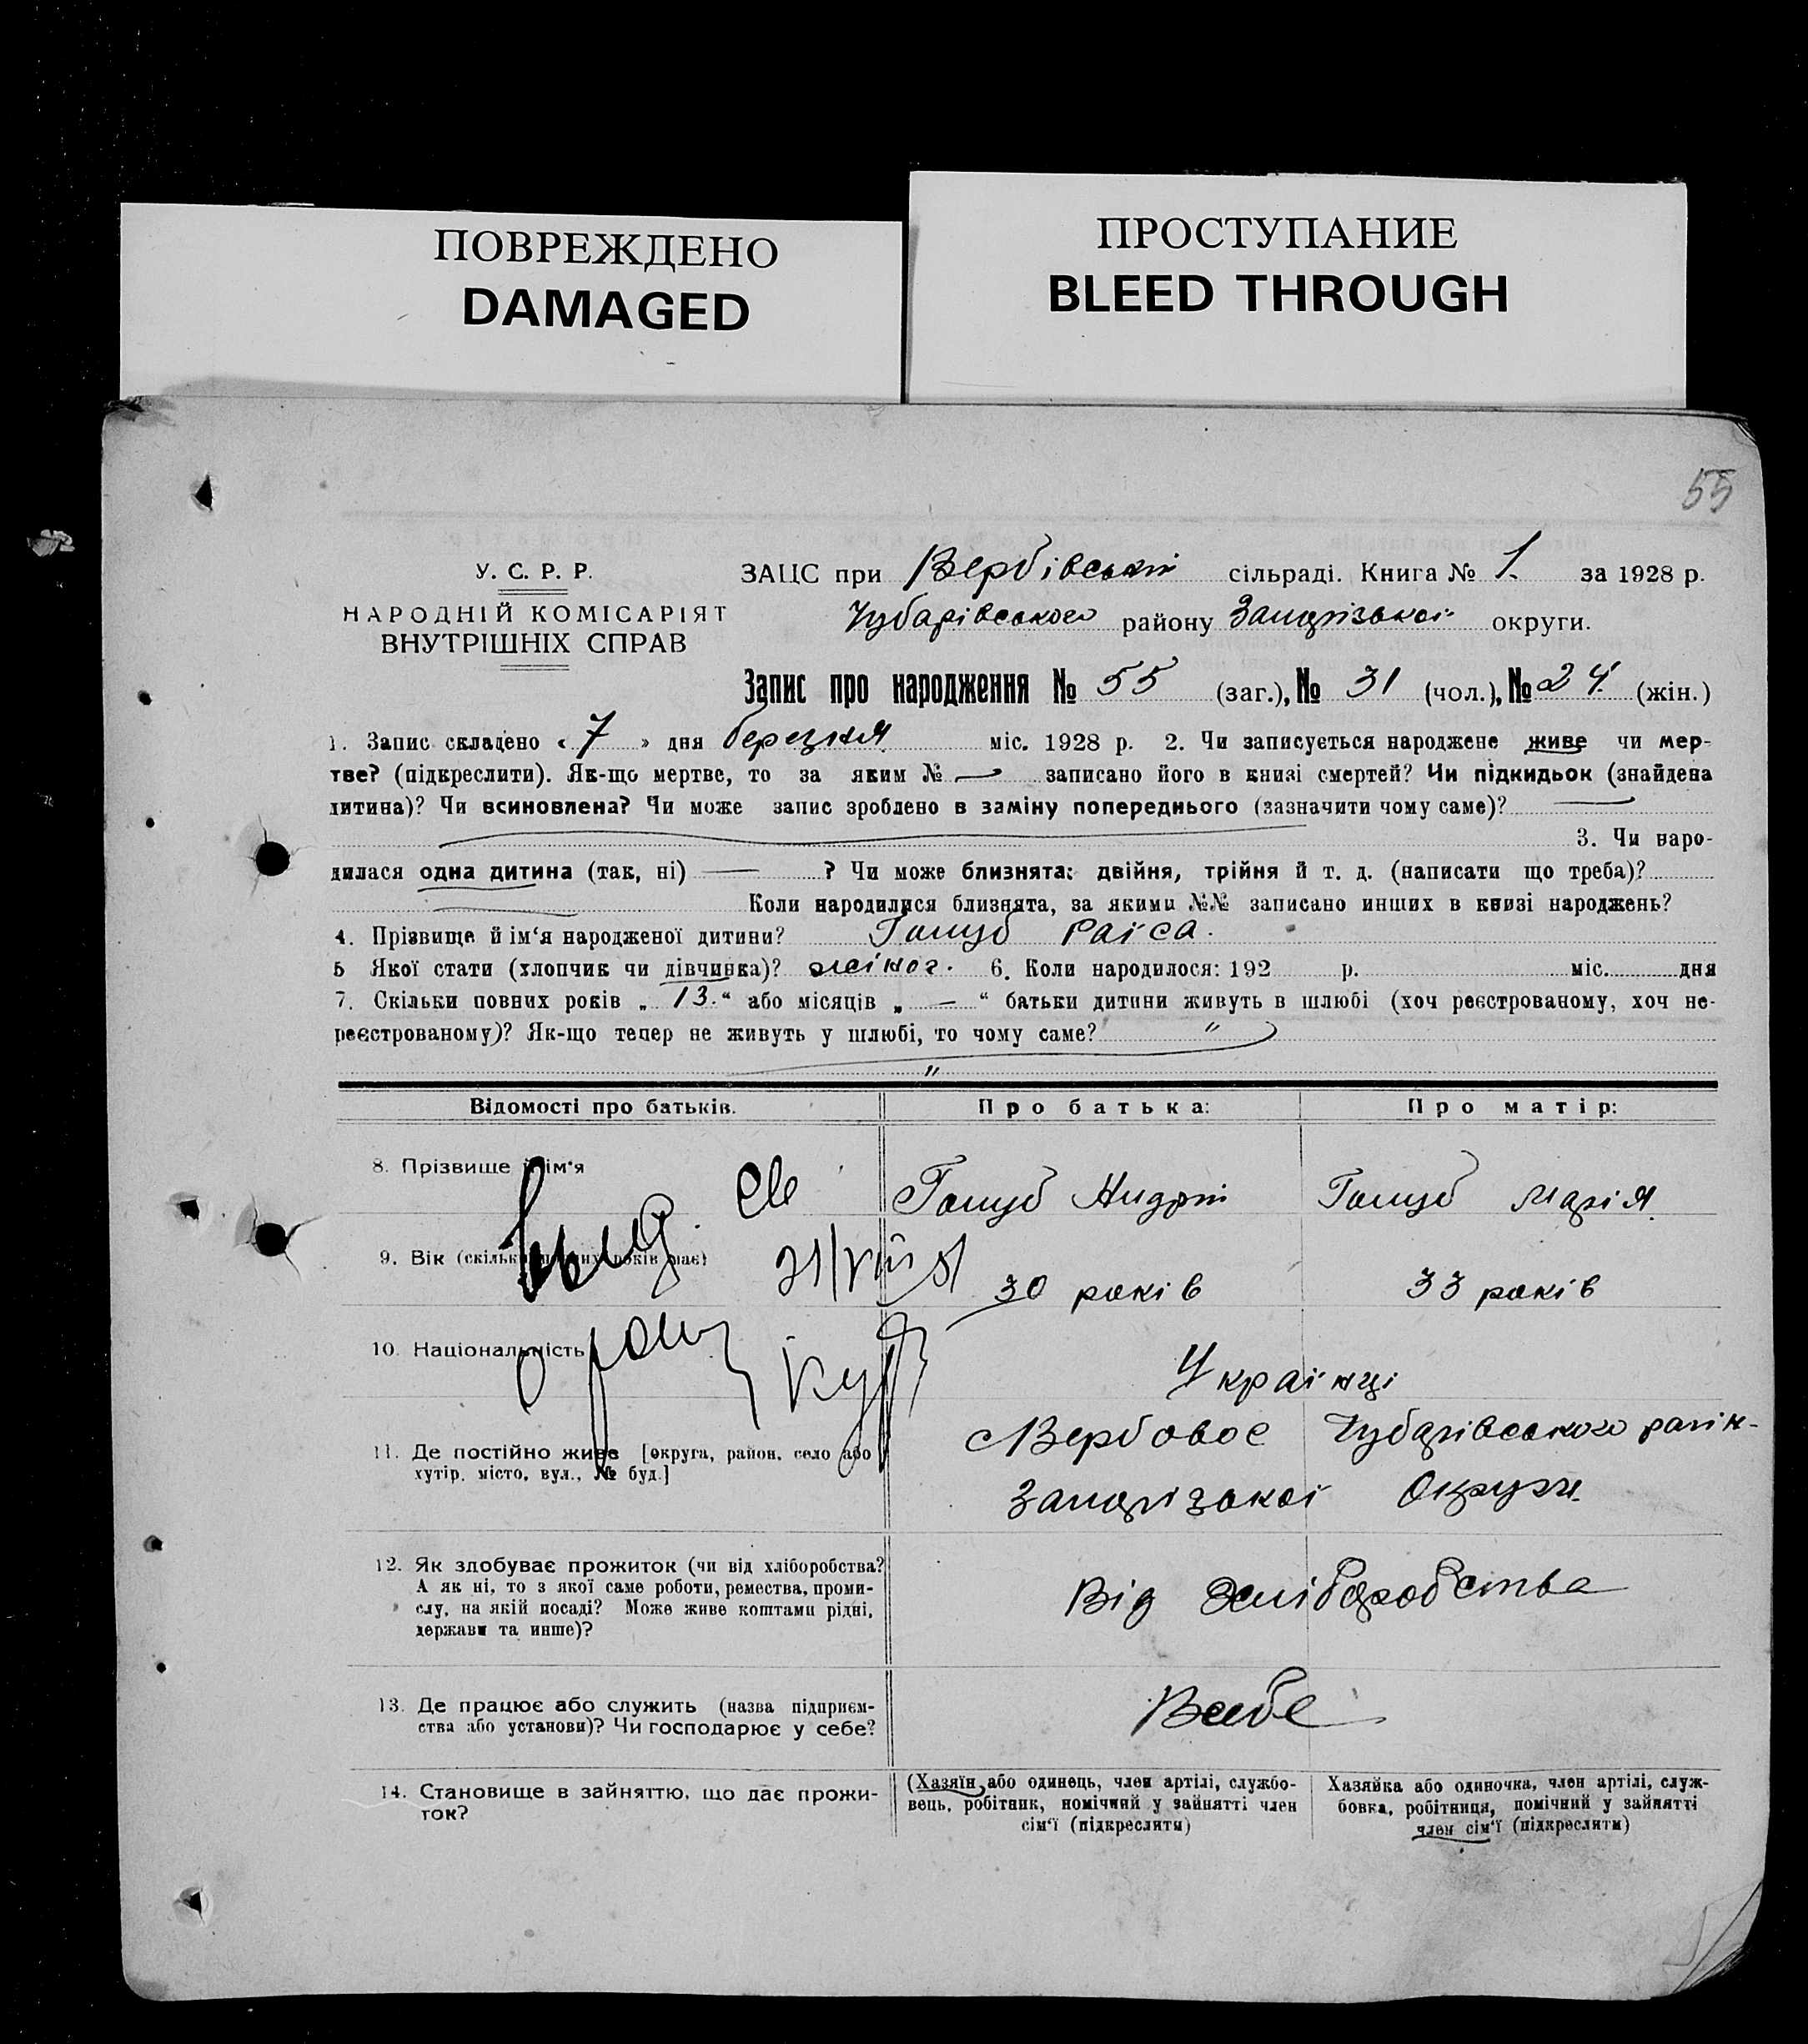 ПОВРЕЖДЕНО
DAMAGED
ПРОСТУПАНИЕ
BLEED THROUGH
55
У. С. Р. Р.
НАРОДНІЙ КОМІСАРІЯТ
ВНУТРІШНІХ СПРАВ
ЗАЦС при Вербівській сільраді. Книга № 1. за 1928 р.
Чубарівського району Запорізької округи.
Запис про народження № 55 (заг.), № 31 (чол.), № 24. (жін.)
1. Запис складено « 7 » дня березня міс. 1928 р. 2. Чи записується народжене живе чи мер-
тве? (підкреслити). Як-що мертве, то за яким № — записано його в книзі смертей? Чи підкидьок (знайдена
дитина)? Чи всиновлена? Чи може запис зроблено в заміну попереднього (зазначити чому саме)? —
3. Чи наро-
дилася одна дитина (так, ні) — ? Чи може близнята: двійня, трійня й т. д. (написати що треба)?
Коли народилися близнята, за якими №№ записано инших в книзі народжень?
4. Прізвище й ім‘я народженої дитини? Голуб Раіса.
5 Якої стати (хлопчик чи дівчинка)? жіноч. 6. Коли народилося: 192 р. міс. дня
7. Скільки повних років „ 13. “ або місяців „ — “ батьки дитини живуть в шлюбі (хоч реєстрованому, хоч не-
реєстрованому)? Як-що тепер не живуть у шлюбі, то чому саме? "
"
Відомості про батьків. Про батька: Про матір:
8. Прізвище й ім‘я Голуб Андрій Голуб Марія.
9. Вік (скільки повних років має) 30 років 33 років
10. Національність Українці
11. Де постійно живе [округа, район, село або
хутір, місто, вул., № буд.]
с Вербовое Чубарівського раіон-
Запорізької Округи.
12. Як здобуває прожиток (чи від хліборобства?
А як ні, то з якої саме роботи, ремества, проми-
слу, на якій посаді? Може живе коштами рідні,
держави та инше)?
Від Хліборобства
13. Де працює або служить (назва підприєм-
ства або установи)? Чи господарює у себе?
Всебе
14. Становище в зайняттю, що дає прожи-
ток?
(Хазяїн або одинець, член артілі, службо-
вець, робітник, помічний у зайнятті член
сім‘ї (підкреслити)
Хазяйка або одиночка, член артілі, служ-
бовка, робітниця, помічний у зайнятті
член сім‘ї (підкреслити)